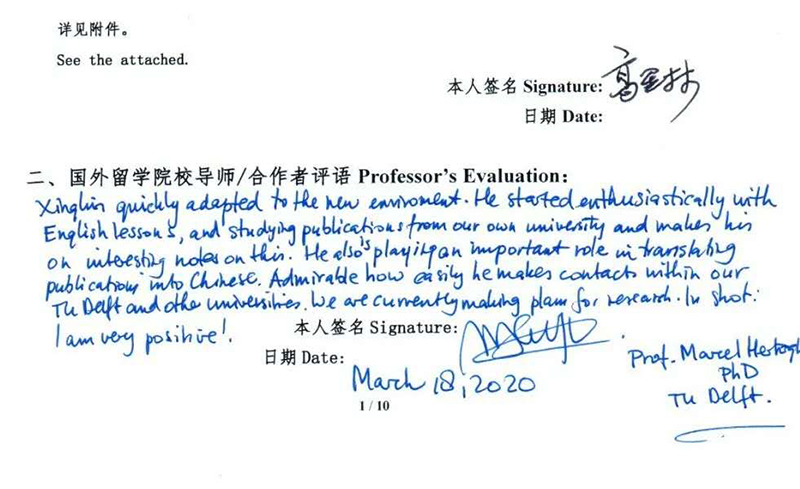 详见附件。
See the attached.
本人签名 Signature: 高星林
日期 Date:
二、国外留学院校导师/合作者评语 Professor's Evaluation:
Xinglin quickly adapted to the new enviroment. He started enthusiastically with
English lessons, and studying publications from our own university and makes his
on interesting notes on this. He also is playing an important role in translating
publications into Chinese. Admirable how easily he makes contacts within our
TU Delft and other universities. We are currently making plans for research. In shot:
I am very positive!
本人签名 Signature:
日期 Date:
March 18, 2020
Prof. Marcel Hertogh
PhD
TU Delft.
1 / 10